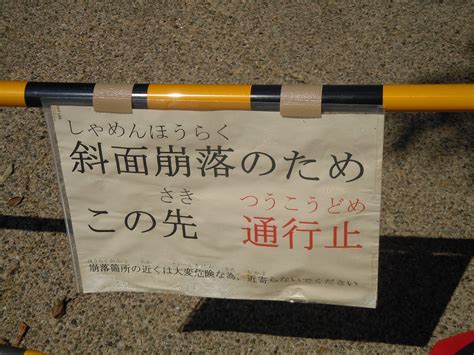 しゃめんほうらく
斜面崩落のため
さき つうこうどめ
この先 通行止
崩落箇所の近くは大変危険な為、近寄らないでください